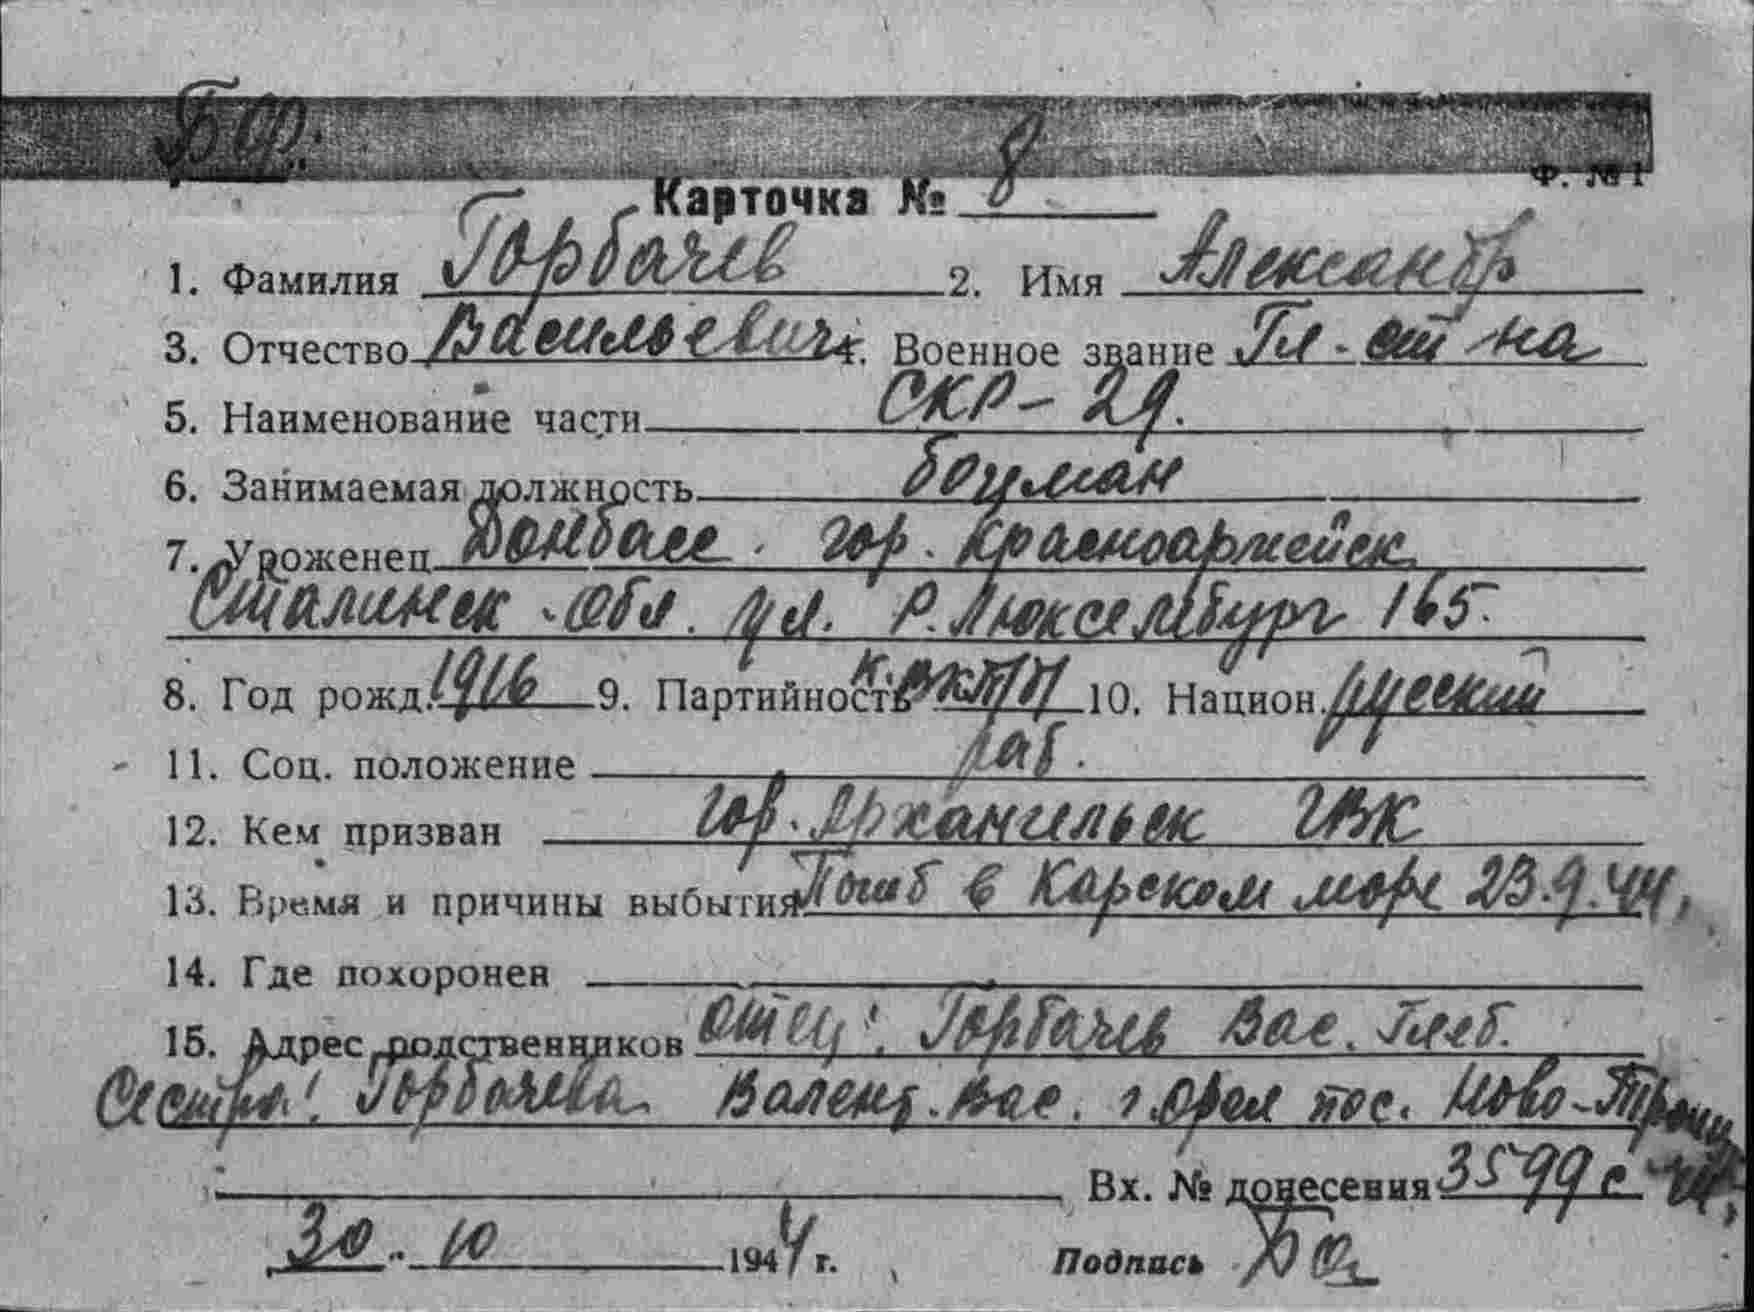 Бор.
Ф. № 1
Карточка № 8
1. Фамилия Горбачев 2. Имя Александр
3. Отчество Васильевич 4. Военное звание Гл-ст-на
5. Наименование части СКР-29.
6. Занимаемая должность боцман
7. Уроженец Донбасс. гор. Красноармейск
Сталинск. обл. ул. Р. Люксембург 165.
8. Год рожд. 1916 9. Партийность к. ВКП/П 10. Национ. русский
11. Соц. положение раб.
12. Кем призван гор. Архангельск ГВК
13. Время и причины выбытия Погиб в Карском море 23.9.44,
14. Где похоронен
15. Адрес родственников отец: Горбачев Вас. Глеб.
Сестра: Горбачева Валент. Вас. г. Орел пос. Ново-Троиц
Вх. № донесения 3599 с
30. 10 1944 г. Подпись